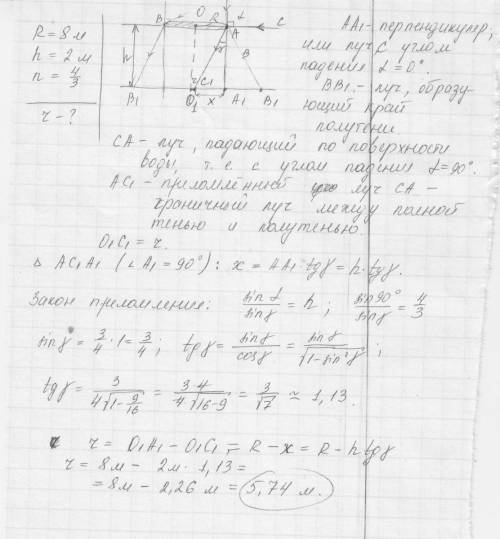 R = 8 м
h = 2 м
n = 4/3
r - ?
B O R A α C
h γ B
B₁ O₁ C₁ x A₁ B₁
AA₁ - перпендикуляр,
или луч с углом
падения α = 0°.
BB₁ - луч, образу-
ющий край
полутени.
CA - луч, падающий по поверхности
воды, т.е. с углом падения α = 90°.
AC₁ - преломлённый луч CA -
граничный луч между полной
тенью и полутенью.
O₁C₁ = r.
Δ AC₁A₁ (∠A₁ = 90°): x = AA₁·tgγ = h·tgγ.
Закон преломления: sinα/sinγ = n; sin90°/sinγ = 4/3
sinγ = 3/4 · 1 = 3/4; tgγ = sinγ/cosγ = sinγ/√(1-sin²γ);
tgγ = 3/(4√(1-9/16)) = (3·4)/(4√(16-9)) = 3/√7 ≈ 1,13.
r = O₁A₁ - O₁C₁ = R - x = R - h tgγ
r = 8м - 2м · 1,13 =
= 8м - 2,26 м = 5,74 м.